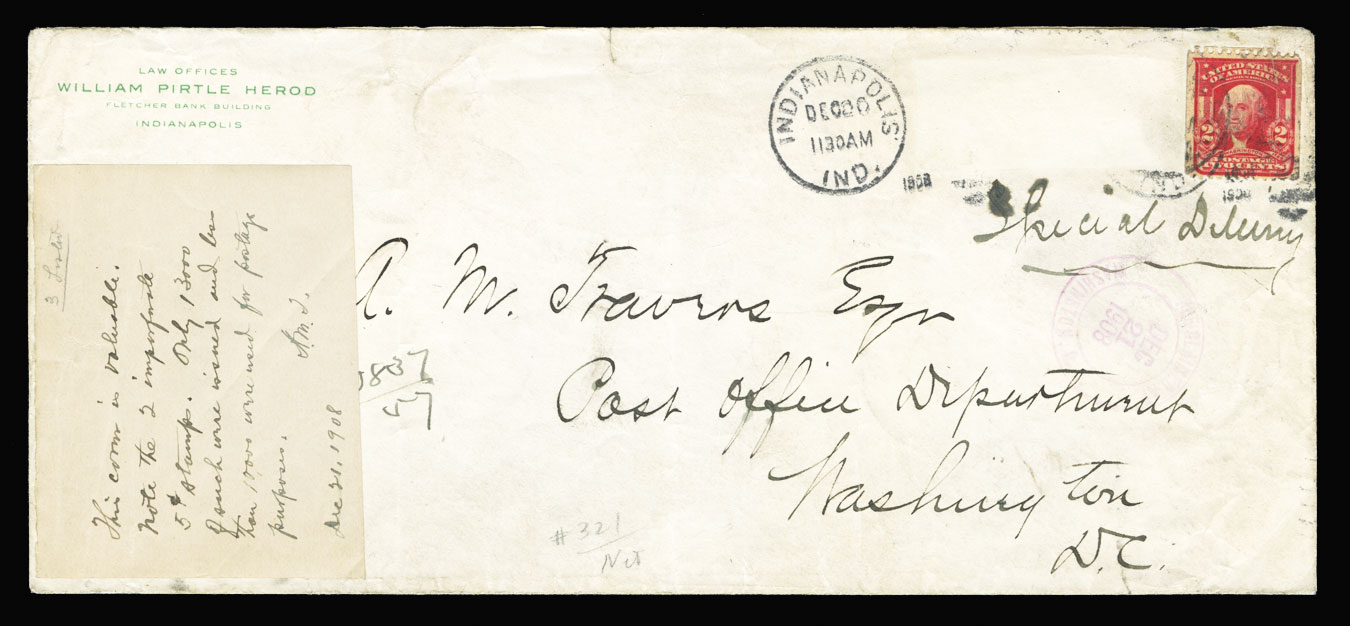 LAW OFFICES
WILLIAM PIRTLE HEROD
FLETCHER BANK BUILDING
INDIANAPOLIS
INDIANAPOLIS
DEC 20
1130AM
IND.
1908
UNITED STATES
OF AMERICA
2 2
POSTAGE
TWO CENTS
1908
Special Delivery
A. M. Travers Esqr
Post Office Department
Washington
D.C.
DEC
21
1908
#321
Net
This cover is valuable.
Note the 2 imperforate
5¢ stamps. Only 13000
of such were issued and less
than 1000 were used for postage
purposes.
A.M.T.
Dec 21, 1908